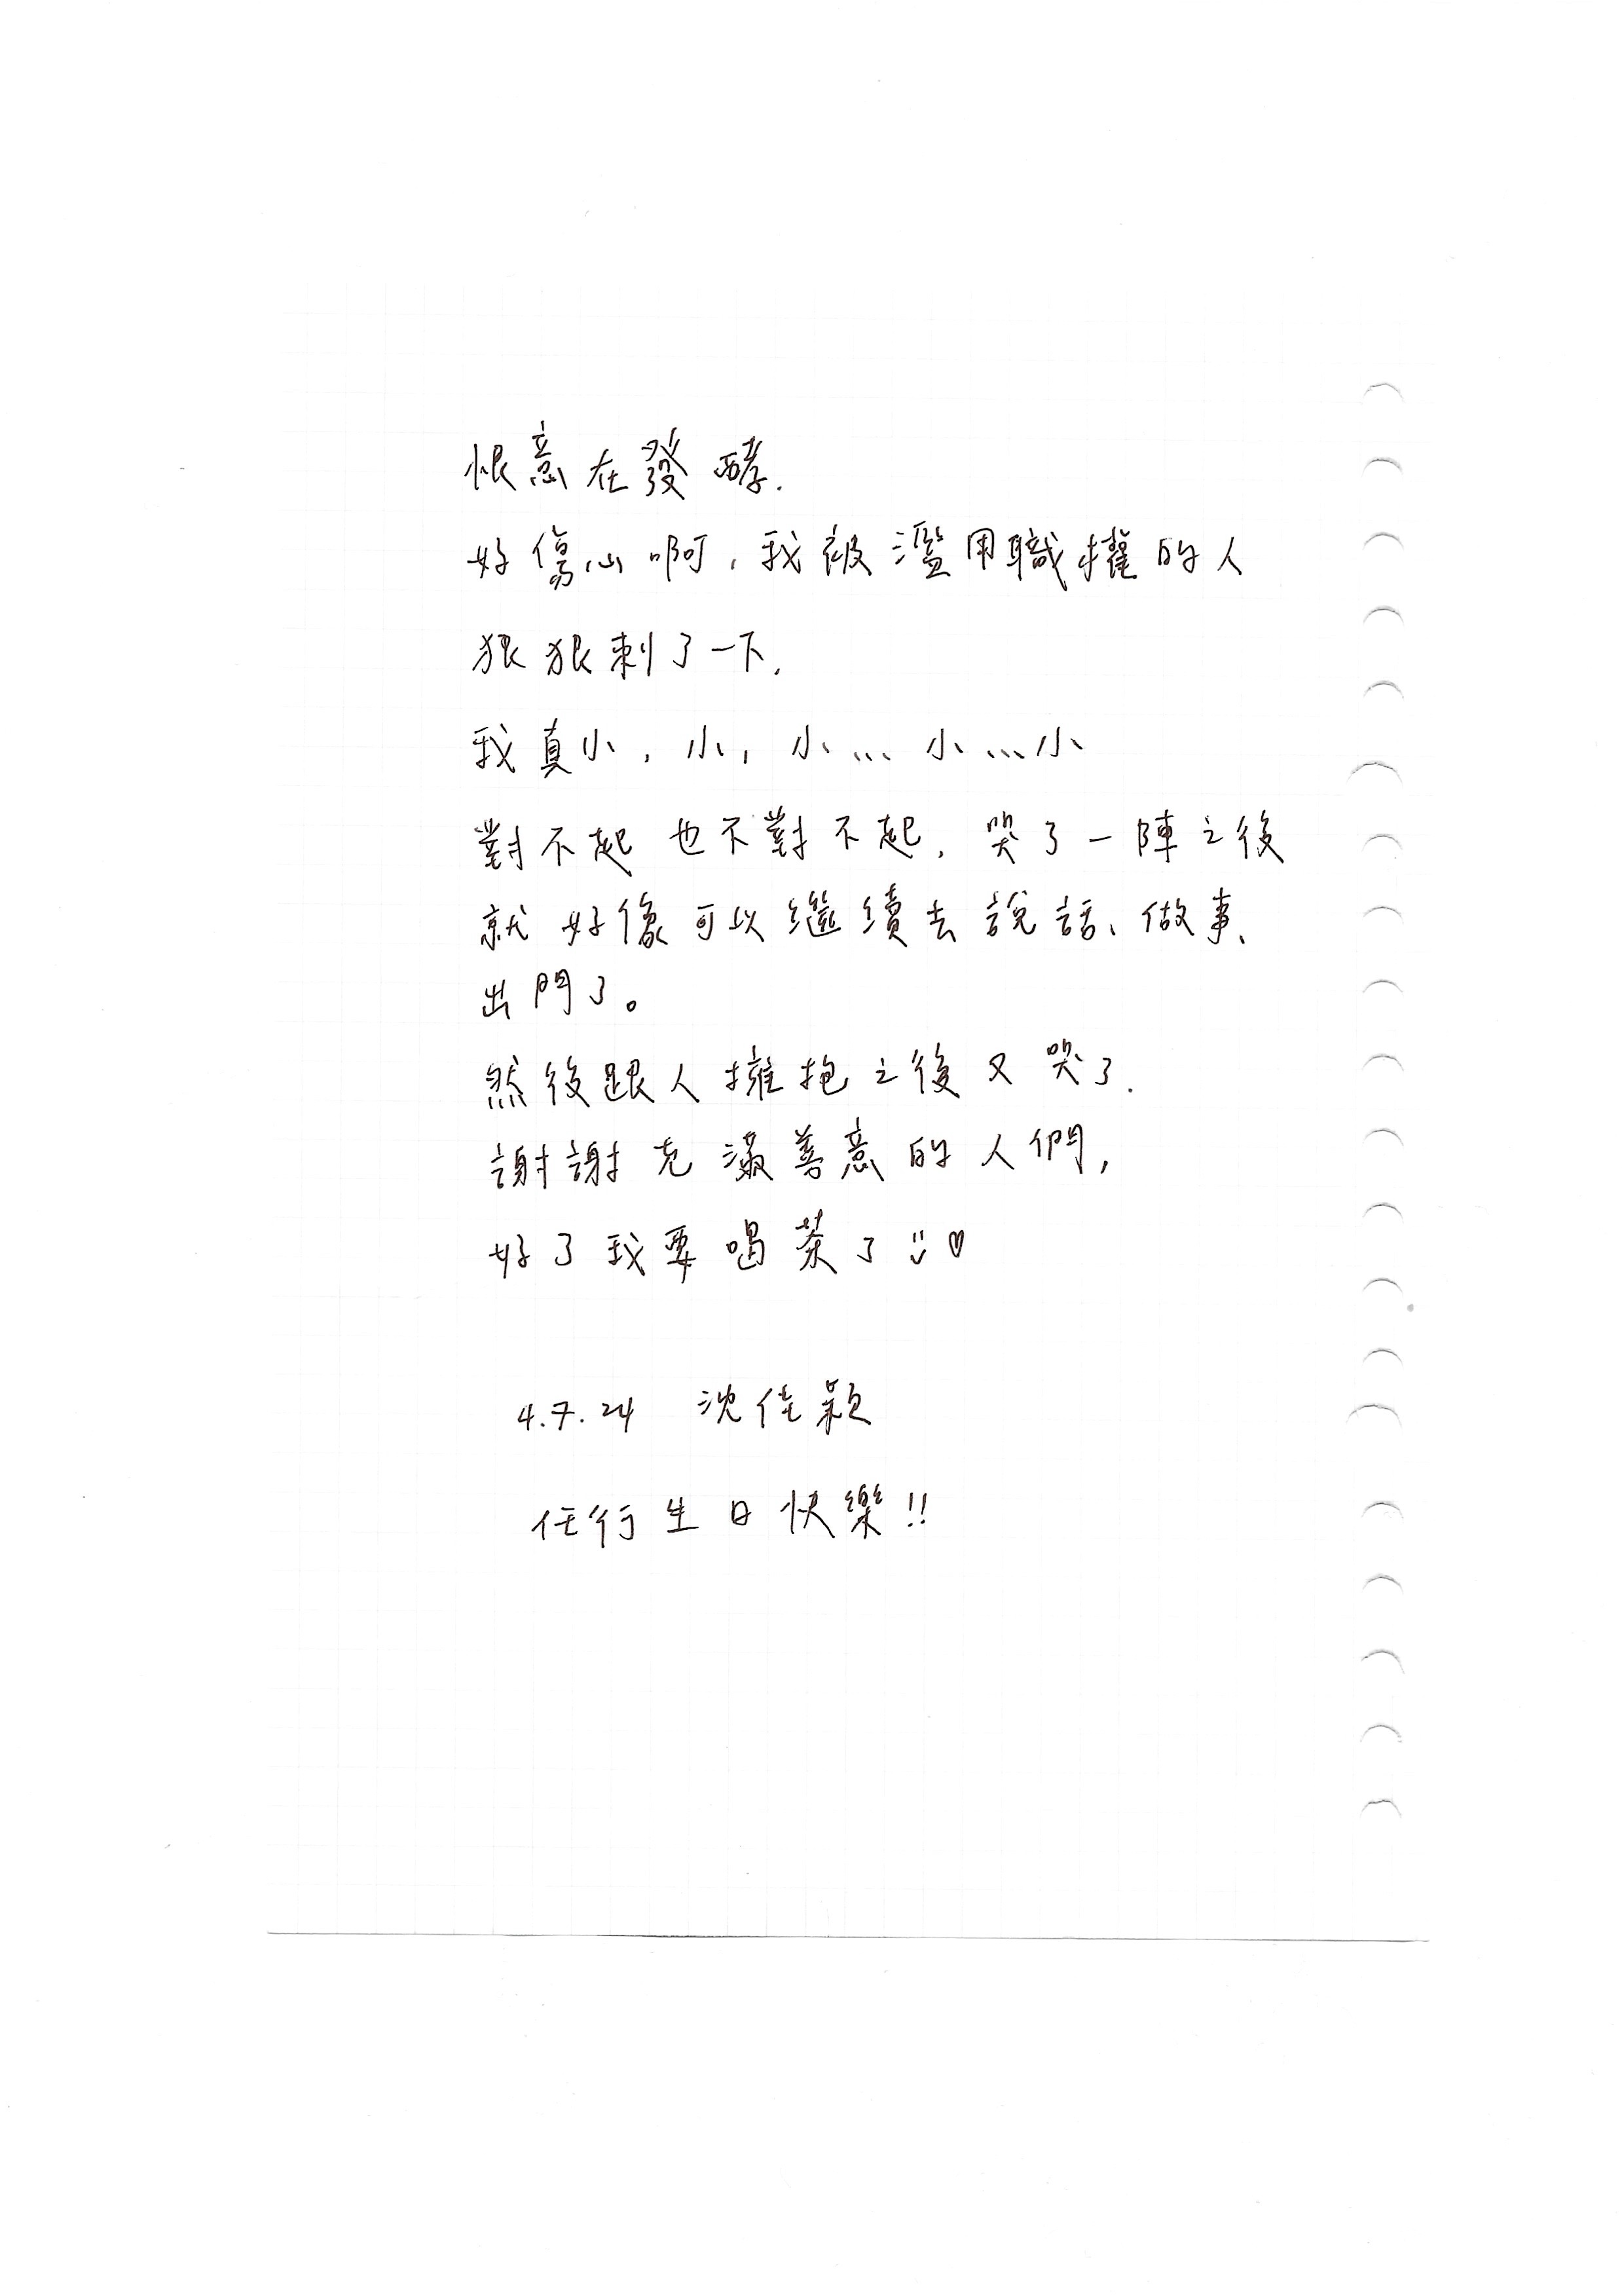 恨意在發酵.
好傷心啊，我被濫用職權的人
狠狠刺了一下.
我真小，小，小...小...小
對不起也不對不起，哭了一陣之後
就好像可以繼續去說話、做事、
出門了。
然後跟人擁抱之後又哭了.
謝謝充滿善意的人們，
好了我要喝茶了 ü♡
4.7.24 沈佳穎
任行生日快樂!!